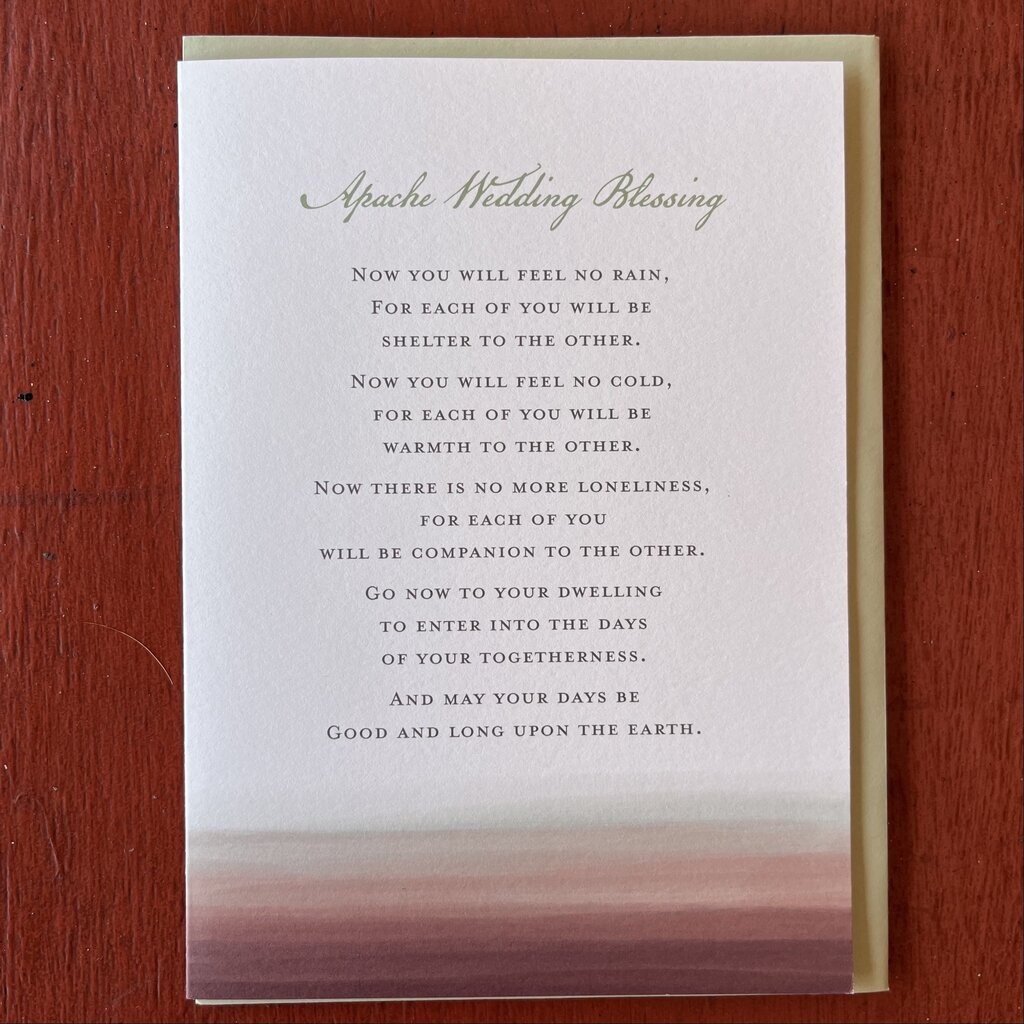 Apache Wedding Blessing
Now you will feel no rain,
For each of you will be
shelter to the other.
Now you will feel no cold,
for each of you will be
warmth to the other.
Now there is no more loneliness,
for each of you
will be companion to the other.
Go now to your dwelling
to enter into the days
of your togetherness.
And may your days be
Good and long upon the earth.